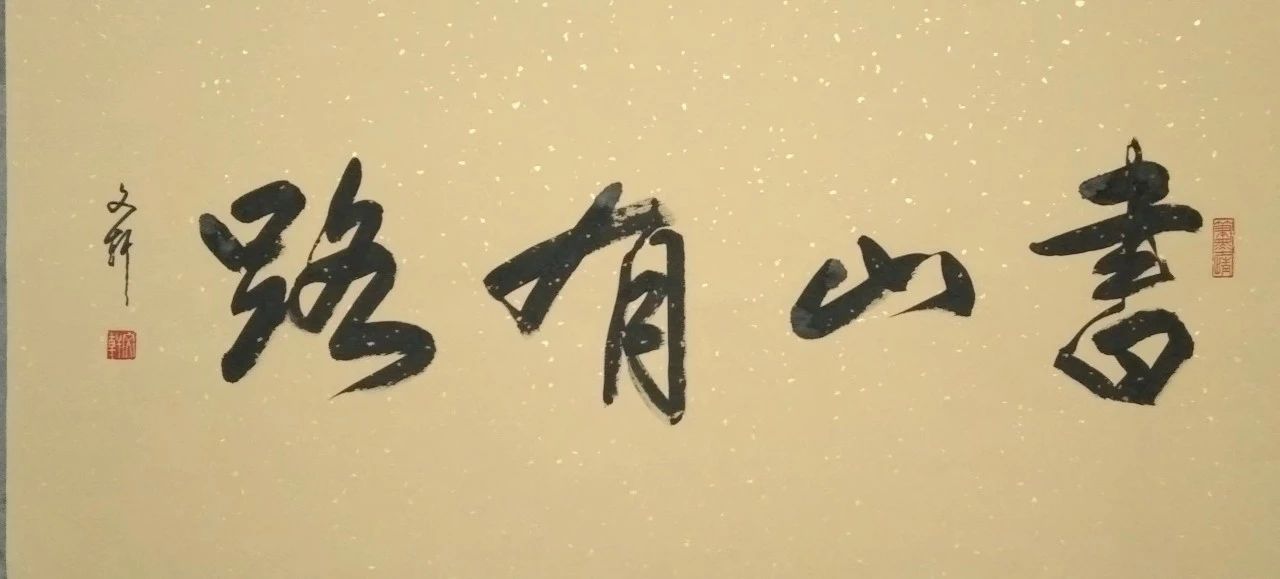 書山有路
文軒